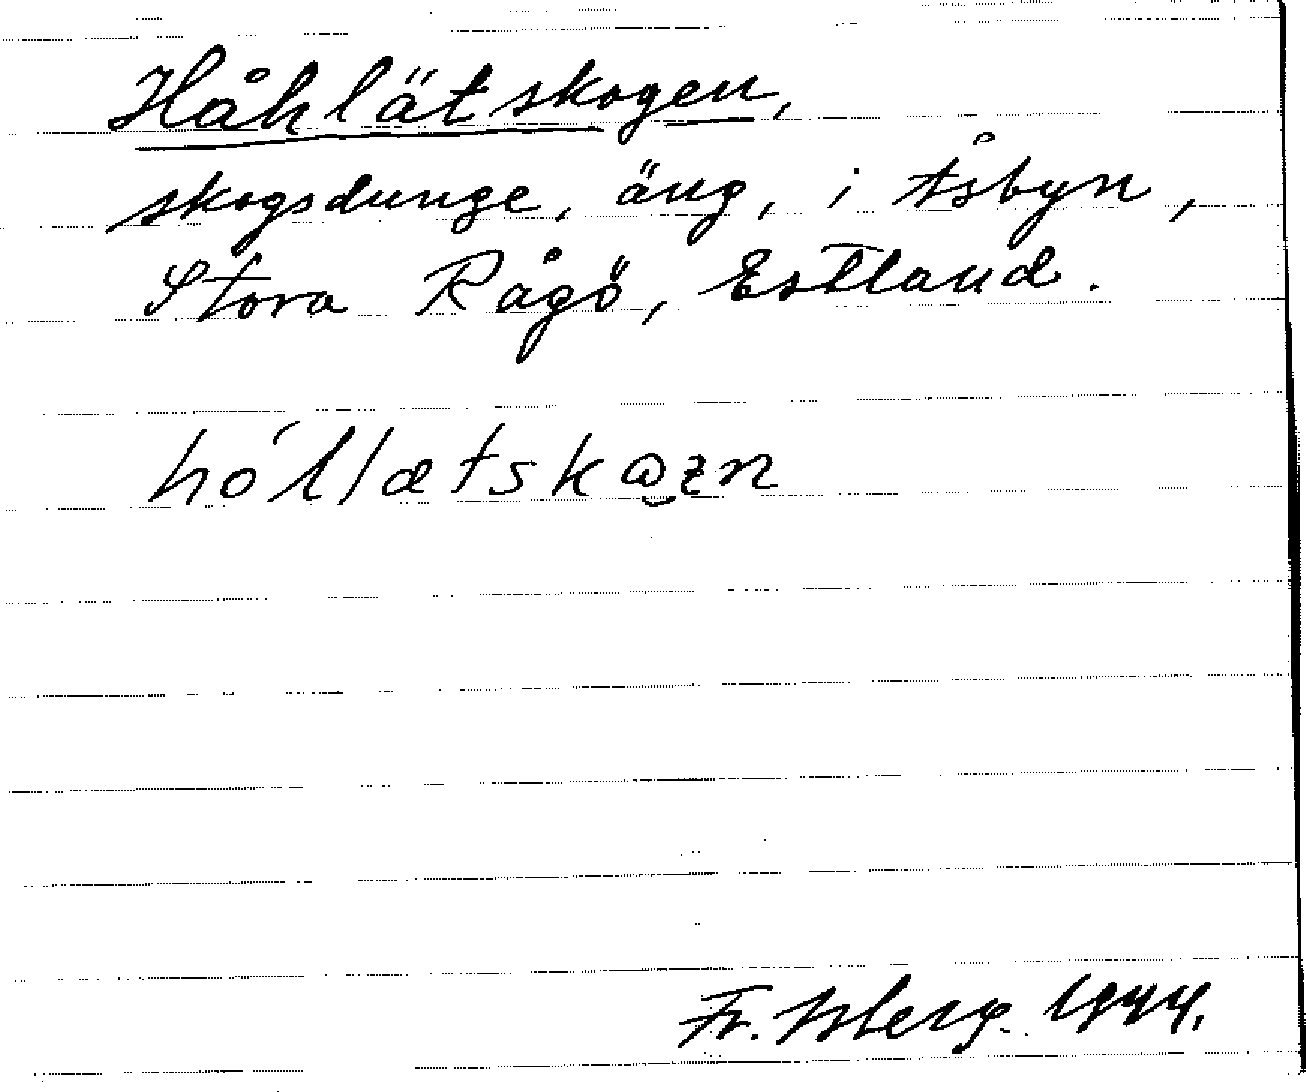 Håhlätskogen,
skogsdunge, äng, i Åsbyn,
Stora Rågö, Estland.
hó̄llætskωzn
Fr. Isberg 1944.